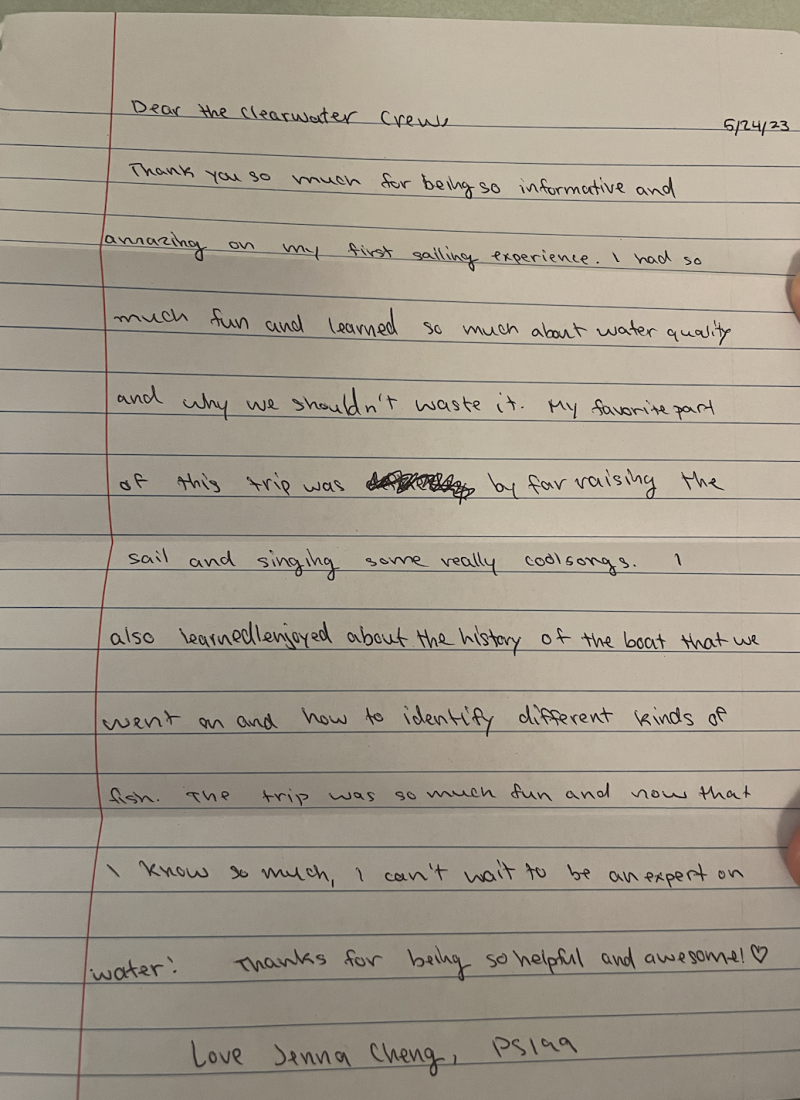 Dear the Clearwater Crew
5/24/23
Thank you so much for being so informative and
amazing on my first sailing experience. I had so
much fun and learned so much about water quality
and why we shouldn't waste it. My favorite part
of this trip was by far raising the
sail and singing some really cool songs. I
also learned/enjoyed about the history of the boat that we
went on and how to identify different kinds of
fish. The trip was so much fun and now that
I know so much, I can't wait to be an expert on
water! Thanks for being so helpful and awesome! ♡
Love Jenna Cheng, PS199